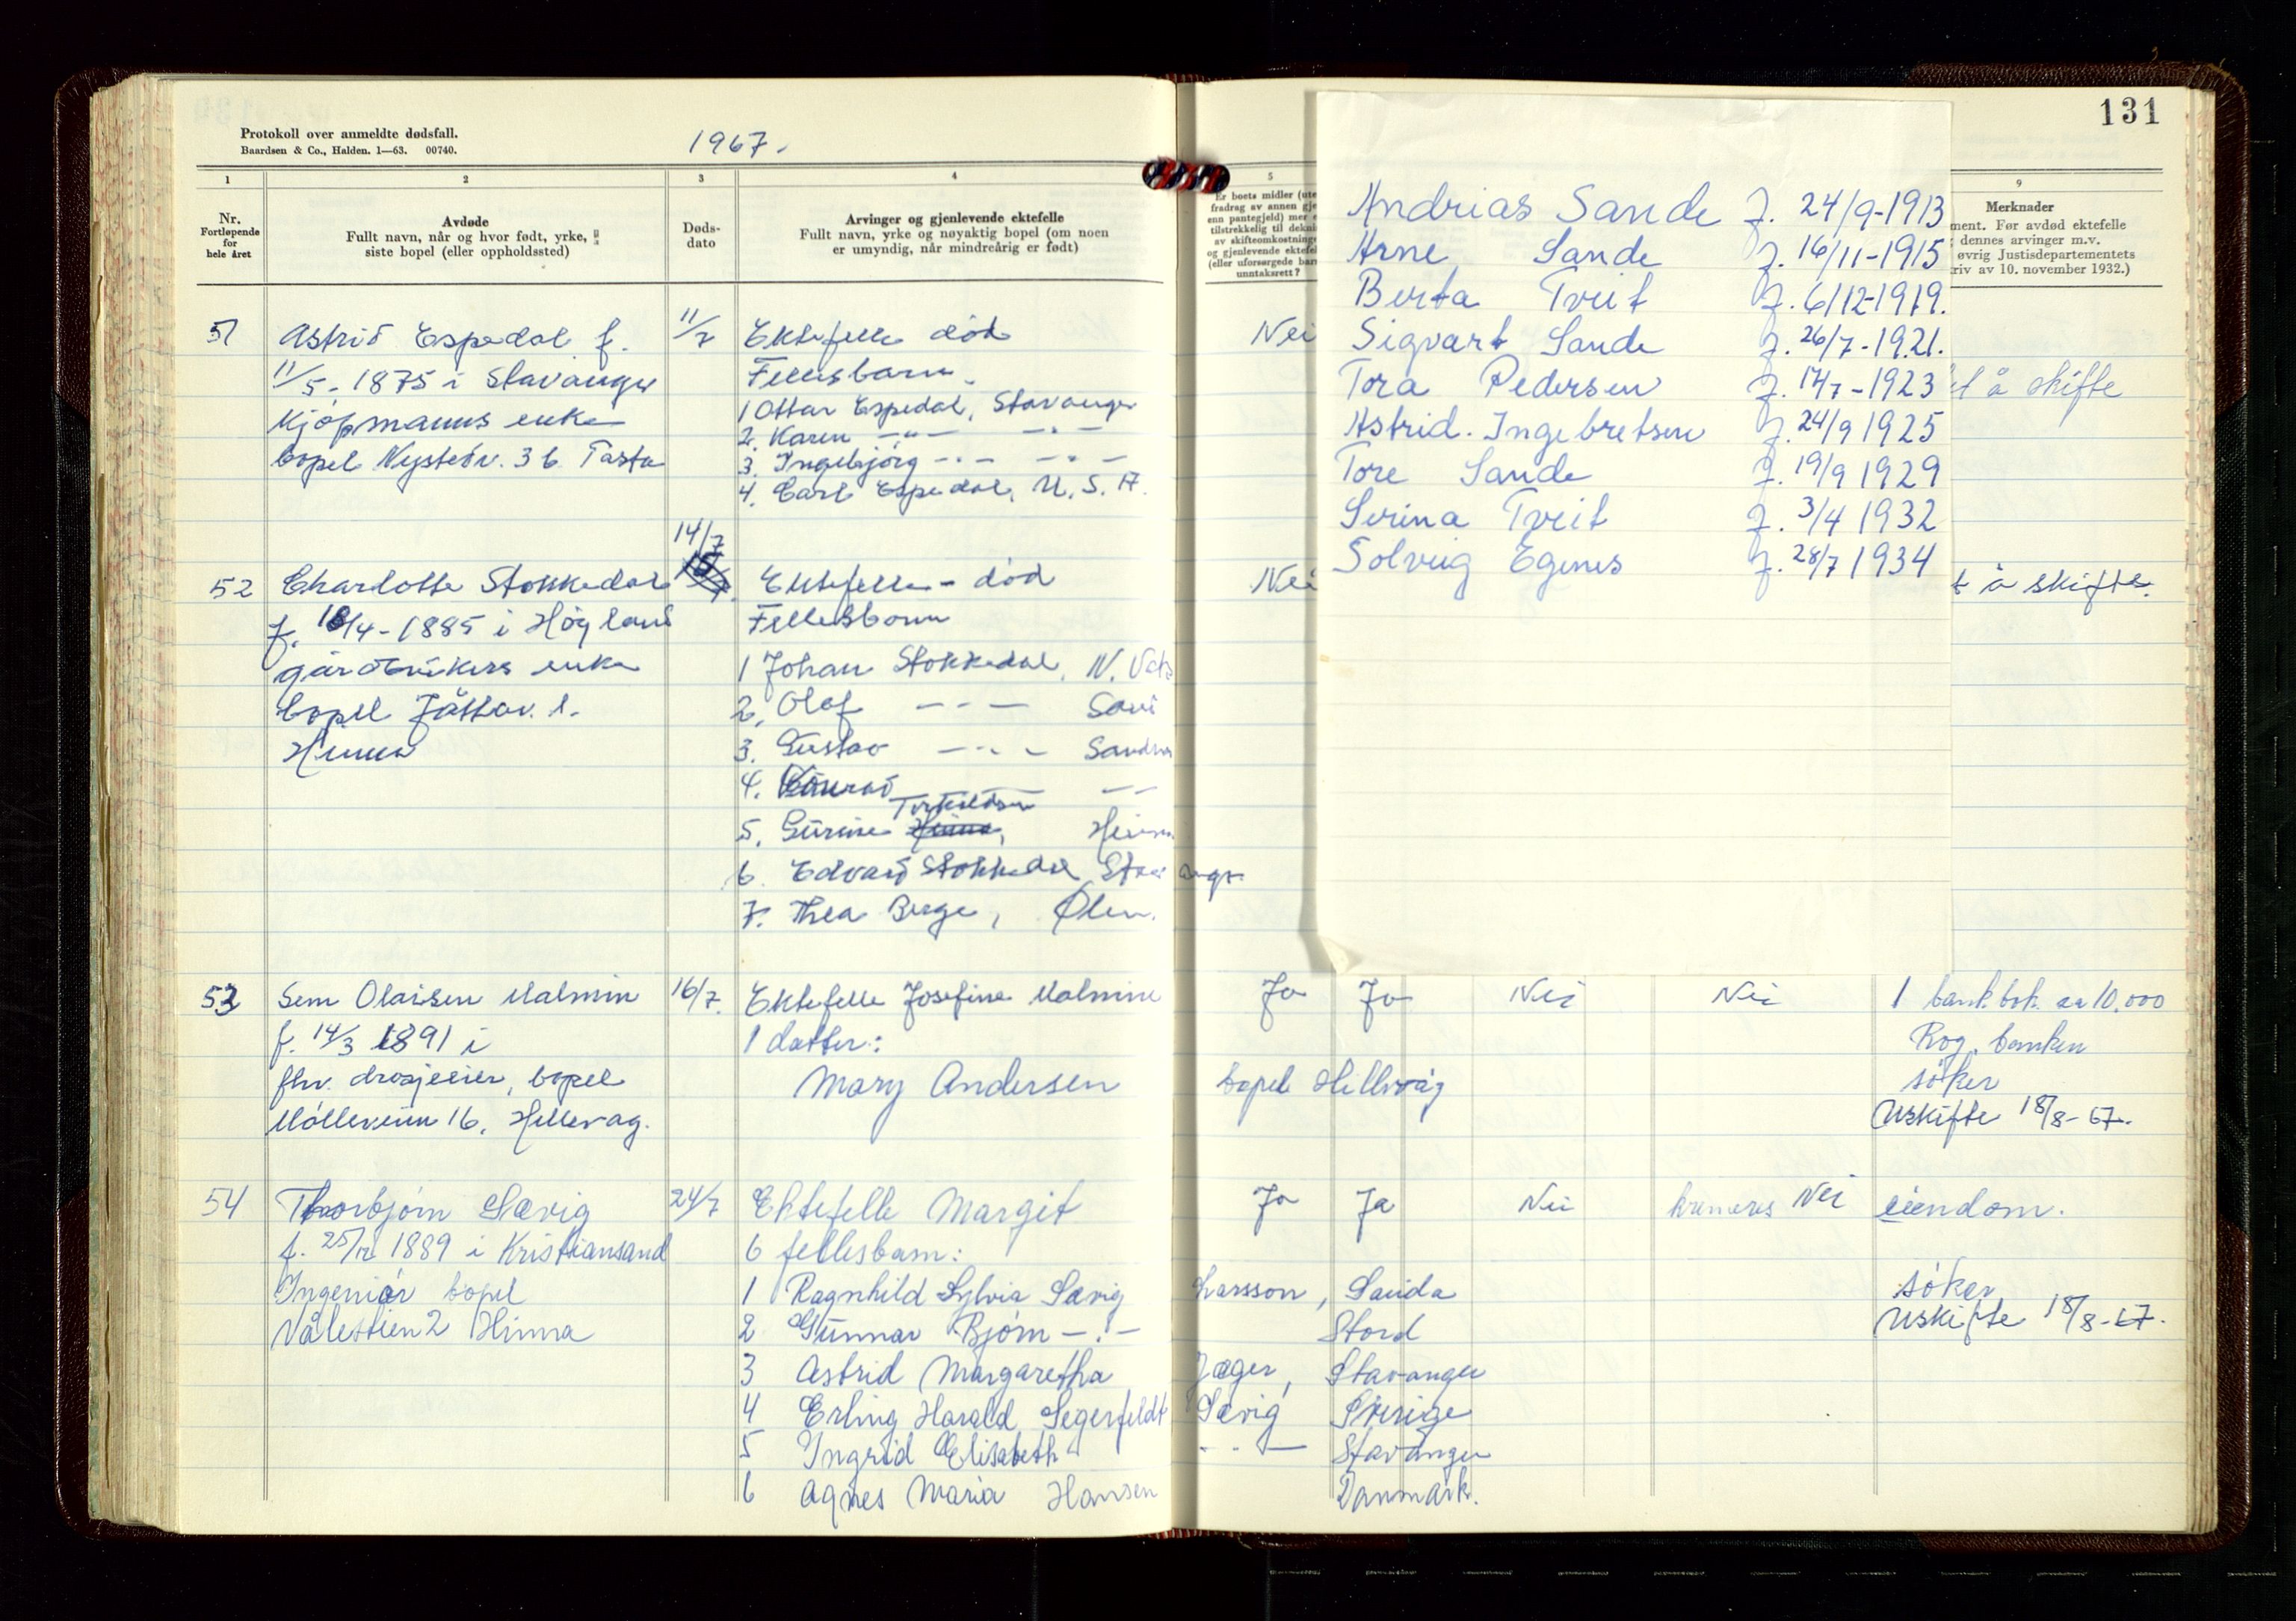 Protokoll over anmeldte dødsfall.
Baardsen & Co., Halden. 1—63. 00740.
1967.
1 2 3 4
Nr.
Fortløpende
for
hele året
Avdøde
Fullt navn, når og hvor født, yrke,
siste bopel (eller oppholdssted)
Døds-
dato
Arvinger og gjenlevende ektefelle
Fullt navn, yrke og nøyaktig bopel (om noen
er umyndig, når mindreårig er født)
51 Astrid Espedal f. 11/7 Ektefelle død
11/5-1875 i Stavanger Fellesbarn
Kjøpmanns enke 1 Ottar Espedal, Stavanger
bopel 36 Tasta 2. Karen -"- -"-
3. Ingebjørg -"- -"-
4. Carl Espedal, U.S.A.
14/7
52 Charlotte Stokkedal Ektefelle - død
f. 18/4-1885 i Høgland Fellesbarn
gårdbrukers enke 1 Johan Stokkedal, N. Vats
bopel Jåttåv. 1. 2. Olof -"-
Hinna 3. Gustav -"-
4. Konrad -"-
Torkildsen
5. Gurine Hinna,
6. Edvard Stokkedal Stavanger
7. Thea Berge, Ølen.
53 Sem Olaisen Malmin 16/7. Ektefelle Josefine Malmin
f. 14/3 1891 i 1 datter:
fhv. drosjeeier, bopel Mary Andersen
Mølleveien 16, Hellevåg.
54 Thorbjørn Sævig 24/7 Ektefelle Margit
f. 25/12 1889 i Kristiansand 6 fellesbarn:
Ingeniør bopel 1 Ragnhild Sylvia Sævig
Vålestien 2 Hinna 2 Gunnar Bjørn -"-
3 Astrid Margaretha
4 Erling Harald Segerfeldt
5 Ingrid Elisabeth
6 Agnes Maria Hansen
131
5
Er boets midler (ute
fradrag av annen gje
enn pantegjeld) mer e
tilstrekkelig til dekni
av skifteomkostning
og gjenlevende ektefel
(eller uforsørgede bar
unntaksrett?
9
Merknader
ment. Før avdød ektefelle
dennes arvinger m.v.
øvrig Justisdepartementets
riv av 10. november 1932.)
Andrias Sande f. 24/9-1913
Arne Sande f. 16/11-1915
Berta Tveit f. 6/12-1919.
Sigvart Sande f. 26/7-1921.
Tora Pedersen f. 17/7-1923
Astrid. Ingebretsen f. 24/9 1925
Tore Sande f. 19/9 1929
Serina Tveit f. 3/4 1932
Solveig Egenes f. 28/7 1934
Nei et å skifte
Nei t å skifte.
Ja Ja Nei Nei 1 bankbok ca 10.000
Rog. banken
bopel Hellevåg søker
Uskifte 18/8-67.
Ja Ja Nei Nei eiendom.
Larsson, Sauda søker
Stord Uskifte 18/8-67.
Jæger, Stavanger
Sævig Sverige
-"- Stavanger
Danmark.